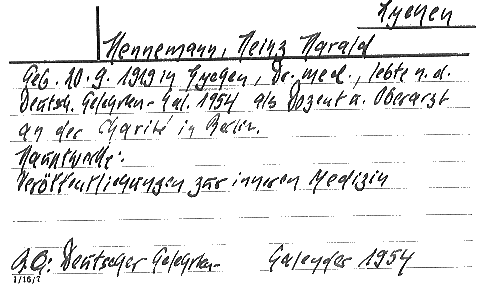 Lychen
Hennemann, Heinz Harald
Geb. 10.9.1919 in Lychen, Dr. med., lebte n. d.
Deutsch. Gelehrten-Kal. 1954 als Dozent u. Oberarzt
an der Charité in Berlin.
Hauptwerke:
Veröffentlichungen zur inneren Medizin
Deutscher Gelehrten- Kalender 1954